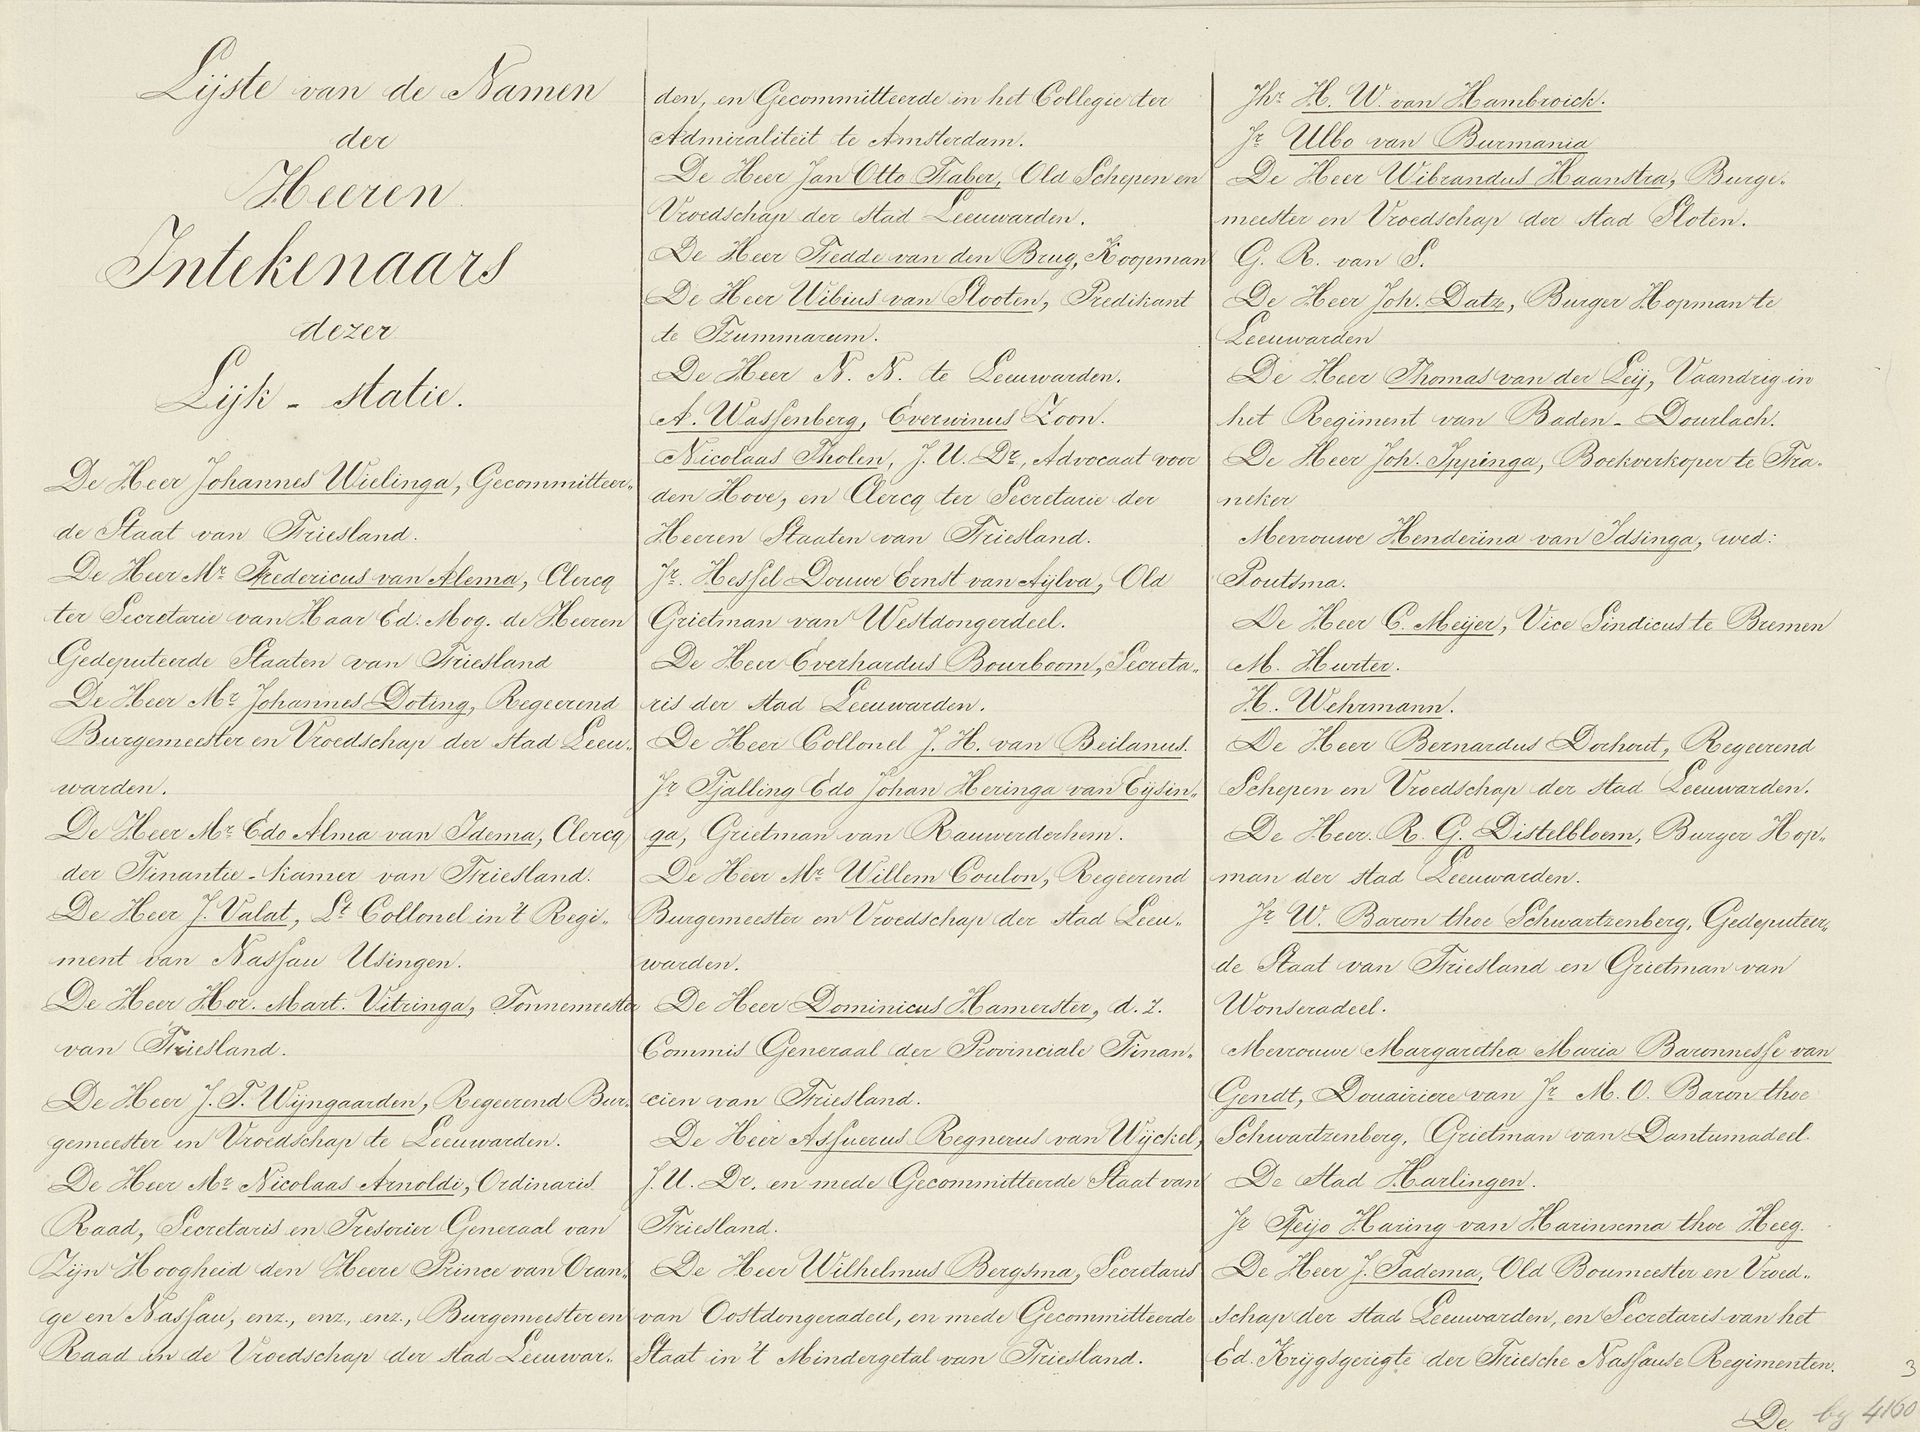 Lijste van de Namen
der
Heeren
Intekenaars
dezer
Lijk - statie.
De Heer Johannes Wielinga, Gecommitteer-
de Staat van Friesland.
De Heer Mr Fredericus van Alema, Clercq
ter Secretarie van Haar Ed: Mog. de Heeren
Gedeputeerde Staaten van Friesland
De Heer Mr Johannes Doting, Regeerend
Burgemeester en Vroedschap der stad Leeu-
warden.
De Heer Mr Edo Alma van Idema, Clercq
der Finantie-kamer van Friesland.
De Heer J. Valat, Lt Collonel in 't Regi-
ment van Nassau Usingen.
De Heer Hor. Mart. Vitringa, Tonnemeester
van Friesland.
De Heer J. T. Wijngaarden, Regeerend Bur-
gemeester en Vroedschap te Leeuwarden.
De Heer Mr Nicolaas Arnoldi, Ordinaris
Raad, Secretaris en Tresorier Generaal van
Zijn Hoogheid den Heere Prince van Oran-
ge en Nassau, enz., enz., enz., Burgemeester en
Raad in de Vroedschap der stad Leeuwar-
den, en Gecommitteerde in het Collegie ter
Admiraliteit te Amsterdam.
De Heer Jan Otto Faber, Old Schepen en
Vroedschap der stad Leeuwarden.
De Heer Fedde van den Brug, Koopman
De Heer Wibius van Slooten, Predikant
te Tzummarum.
De Heer N. N. te Leeuwarden.
A. Wassenberg, Everwinus Zoon.
Nicolaas Tholen, J. U. Dr, Advocaat voor
den Hove, en Clercq ter Secretarie der
Heeren Staaten van Friesland.
Jr. Hessel Douwe Ernst van Aylva, Old
Grietman van Westdongerdeel.
De Heer Everhardus Bourboom, Secreta-
ris der stad Leeuwarden.
De Heer Collonel J. H. van Beilanus.
Jr Tjalling Edo Johan Heringa van Eijsin-
ga, Grietman van Rauwerderhem.
De Heer Mr Willem Coulon, Regeerend
Burgemeester en Vroedschap der stad Leeu-
warden.
De Heer Dominicus Hamerster, d. z.
Commis Generaal der Provinciale Finan-
cien van Friesland.
De Heer Assuerus Regnerus van Wijckel,
J. U. Dr. en mede Gecommitteerde Staat van
Friesland.
De Heer Wilhelmus Bergsma, Secretaris
van Oostdongeradeel, en mede Gecommitteerde
Staat in 't Mindergetal van Friesland.
Jhr H. W. van Hambroick.
Jr Ulbo van Burmania
De Heer Wibrandus Haanstra, Burge-
meester en Vroedschap der stad Sloten.
G. R. van S.
De Heer Joh. Datz, Burger Hopman te
Leeuwarden
De Heer Thomas van der Leij, Vaandrig in
het Regiment van Baden-Dourlach.
De Heer Joh. Ippinga, Boekverkoper te Fra-
neker
Mevrouwe Henderina van Idsinga, wed:
Poutsma.
De Heer C. Meijer, Vice Sindicus te Bremen
M. Hurter.
H. Wehrmann.
De Heer Bernardus Dorhout, Regeerend
Schepen en Vroedschap der stad Leeuwarden.
De Heer. R. G. Distelbloem, Burger Hop-
man der stad Leeuwarden.
Jr W. Baron thoe Schwartzenberg, Gedeputeer-
de Staat van Friesland en Grietman van
Wonseradeel.
Mevrouwe Margaretha Maria Baronnesse van
Gendt, Douairiere van Jr M. O. Baron thoe
Schwartzenberg, Grietman van Dantumadeel.
De Stad Harlingen.
Jr Feijo Haring van Harinxma thoe Heeg.
De Heer J. Tadema, Old Boumeester en Vroed-
schap der stad Leeuwarden, en Secretaris van het
Ed. Krijgsgerigte der Friesche Nassause Regimenten.
De
3
by 4160